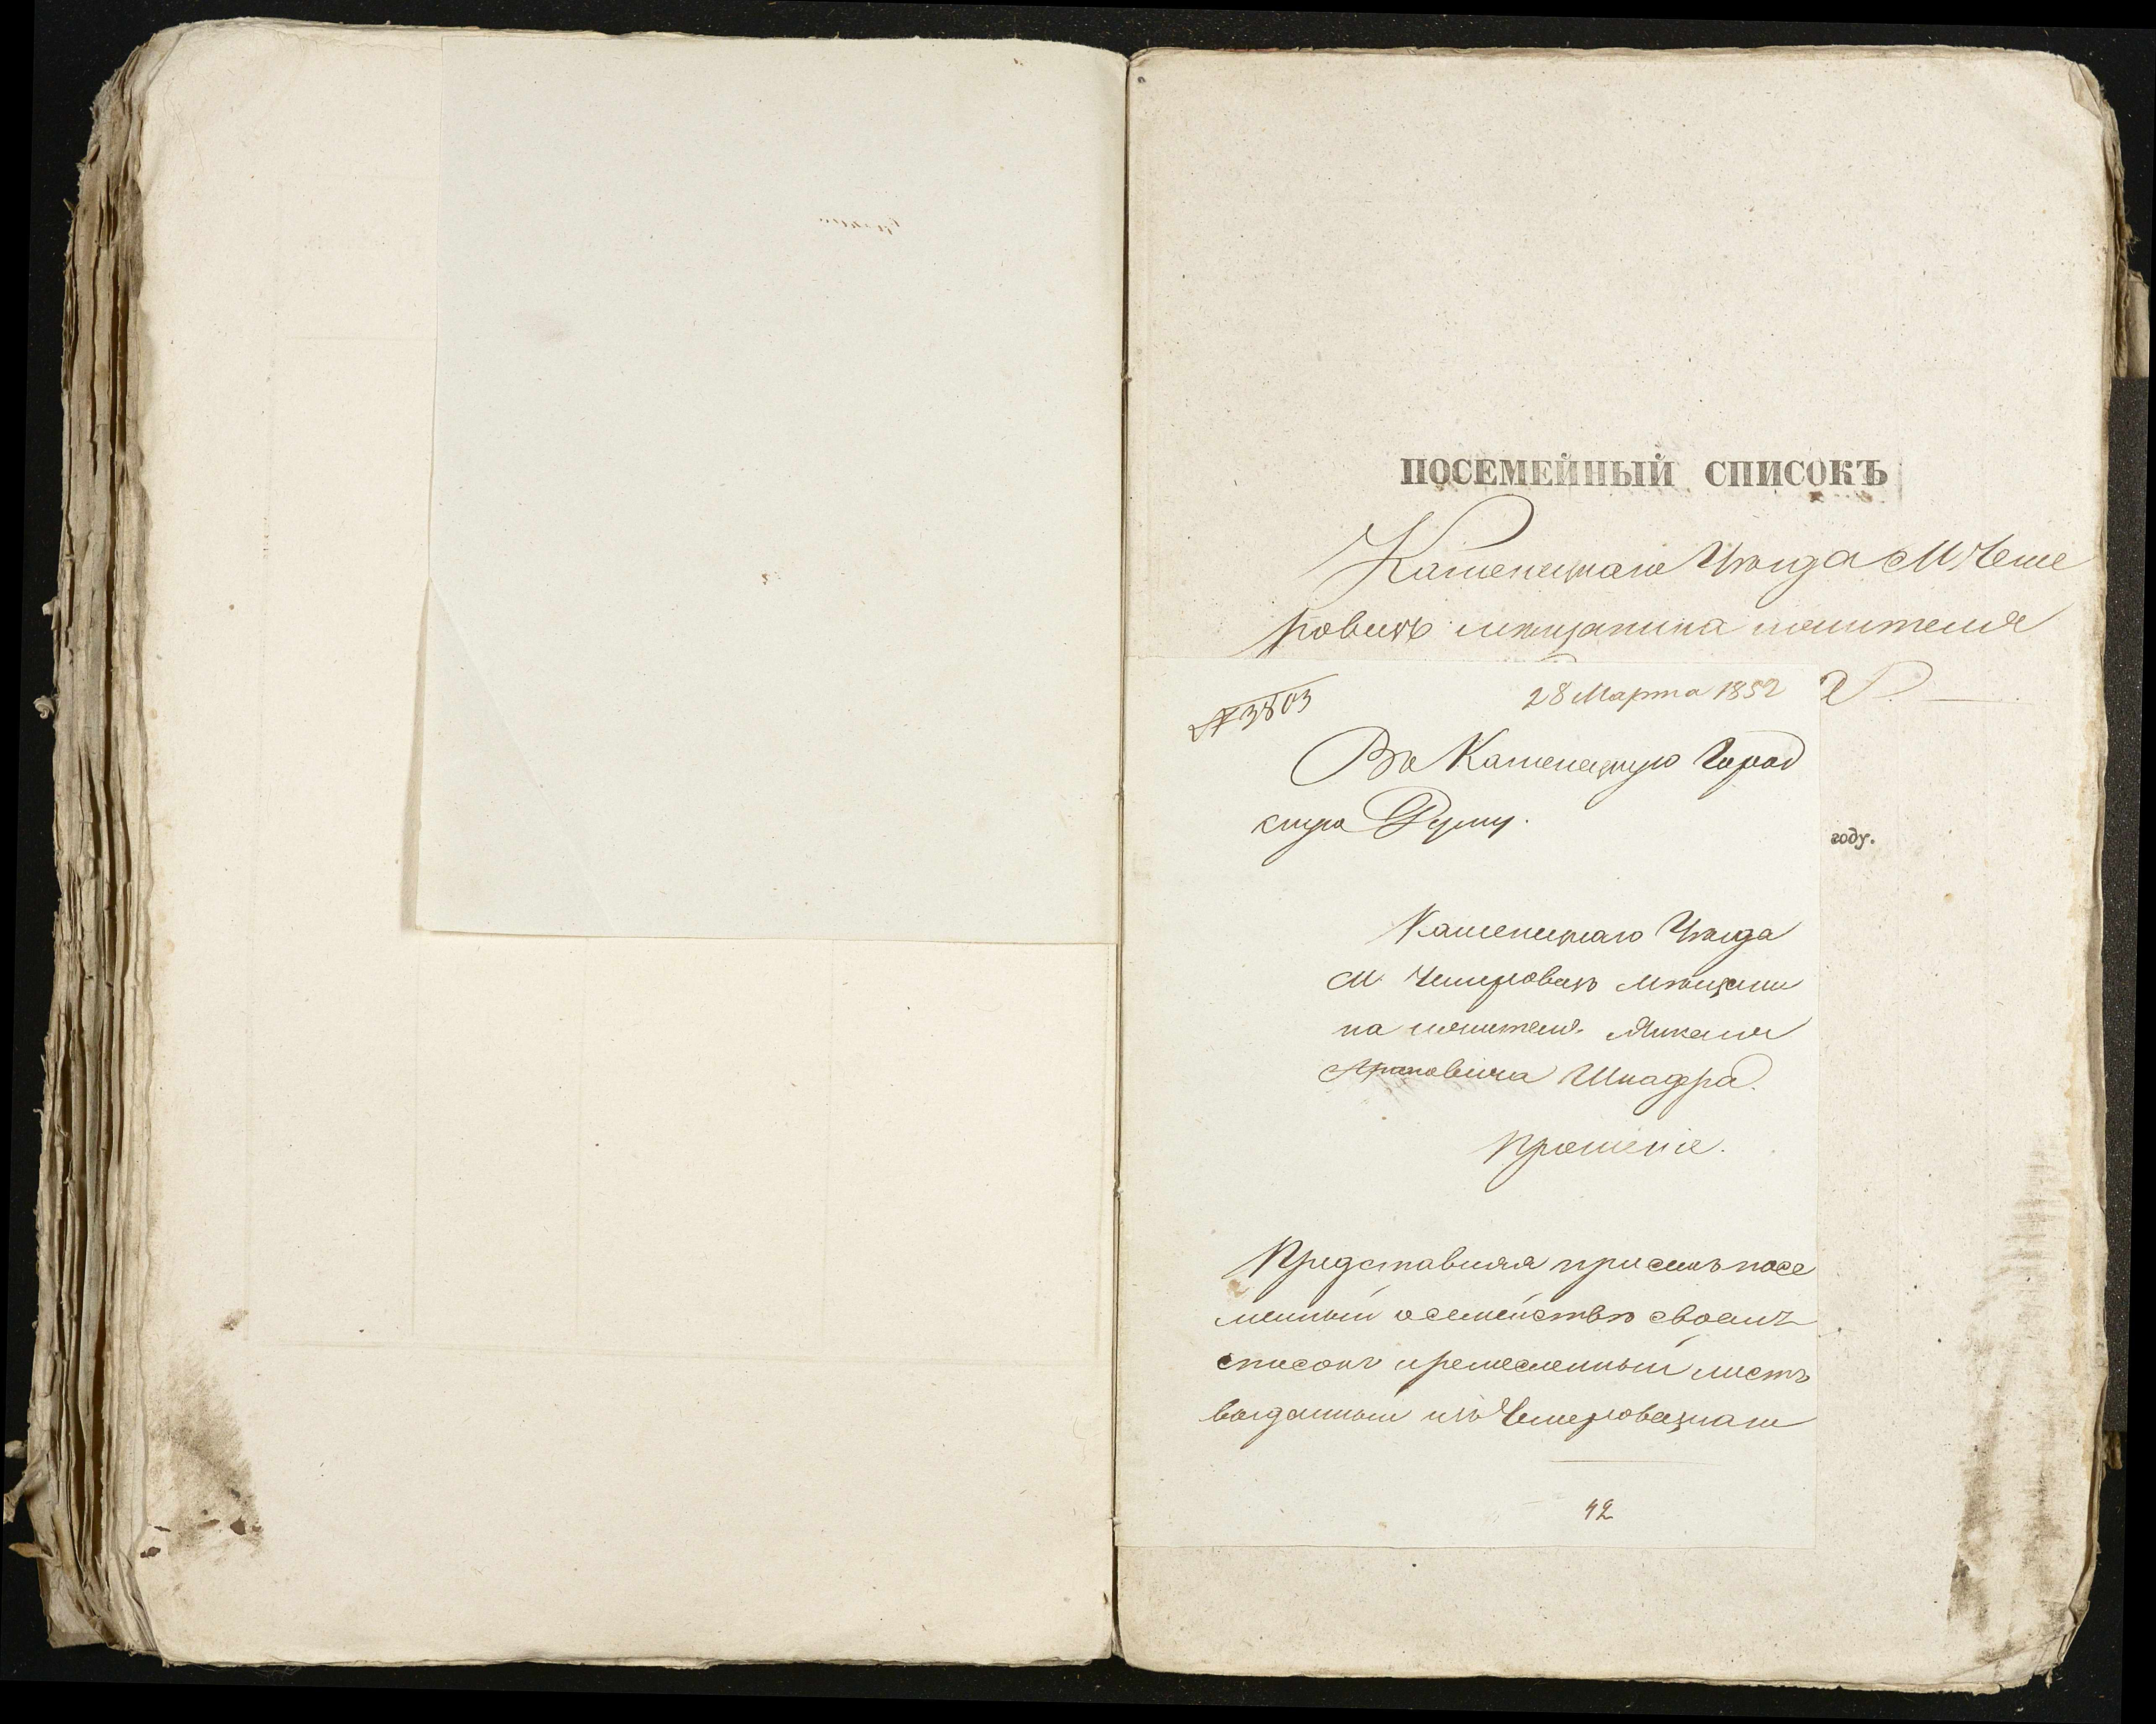 ПОСЕМЕЙНЫЙ СПИСОКЪ
Каменецкаго Уѣзда М Чеме
ровецъ мѣщанина
№ 3803
28 Марта 1852
Въ Каменецкую Город
скую Думу.
году.
Каменецкаго Уѣзда
М. Чемеровецъ мѣщани
на
Шнайдра.
Прошеніе.
Представляя при семъ посе
мейный о семействѣ своемъ
списокъ и ремесленный листъ
выданный изъ Чемеровецкаго
42